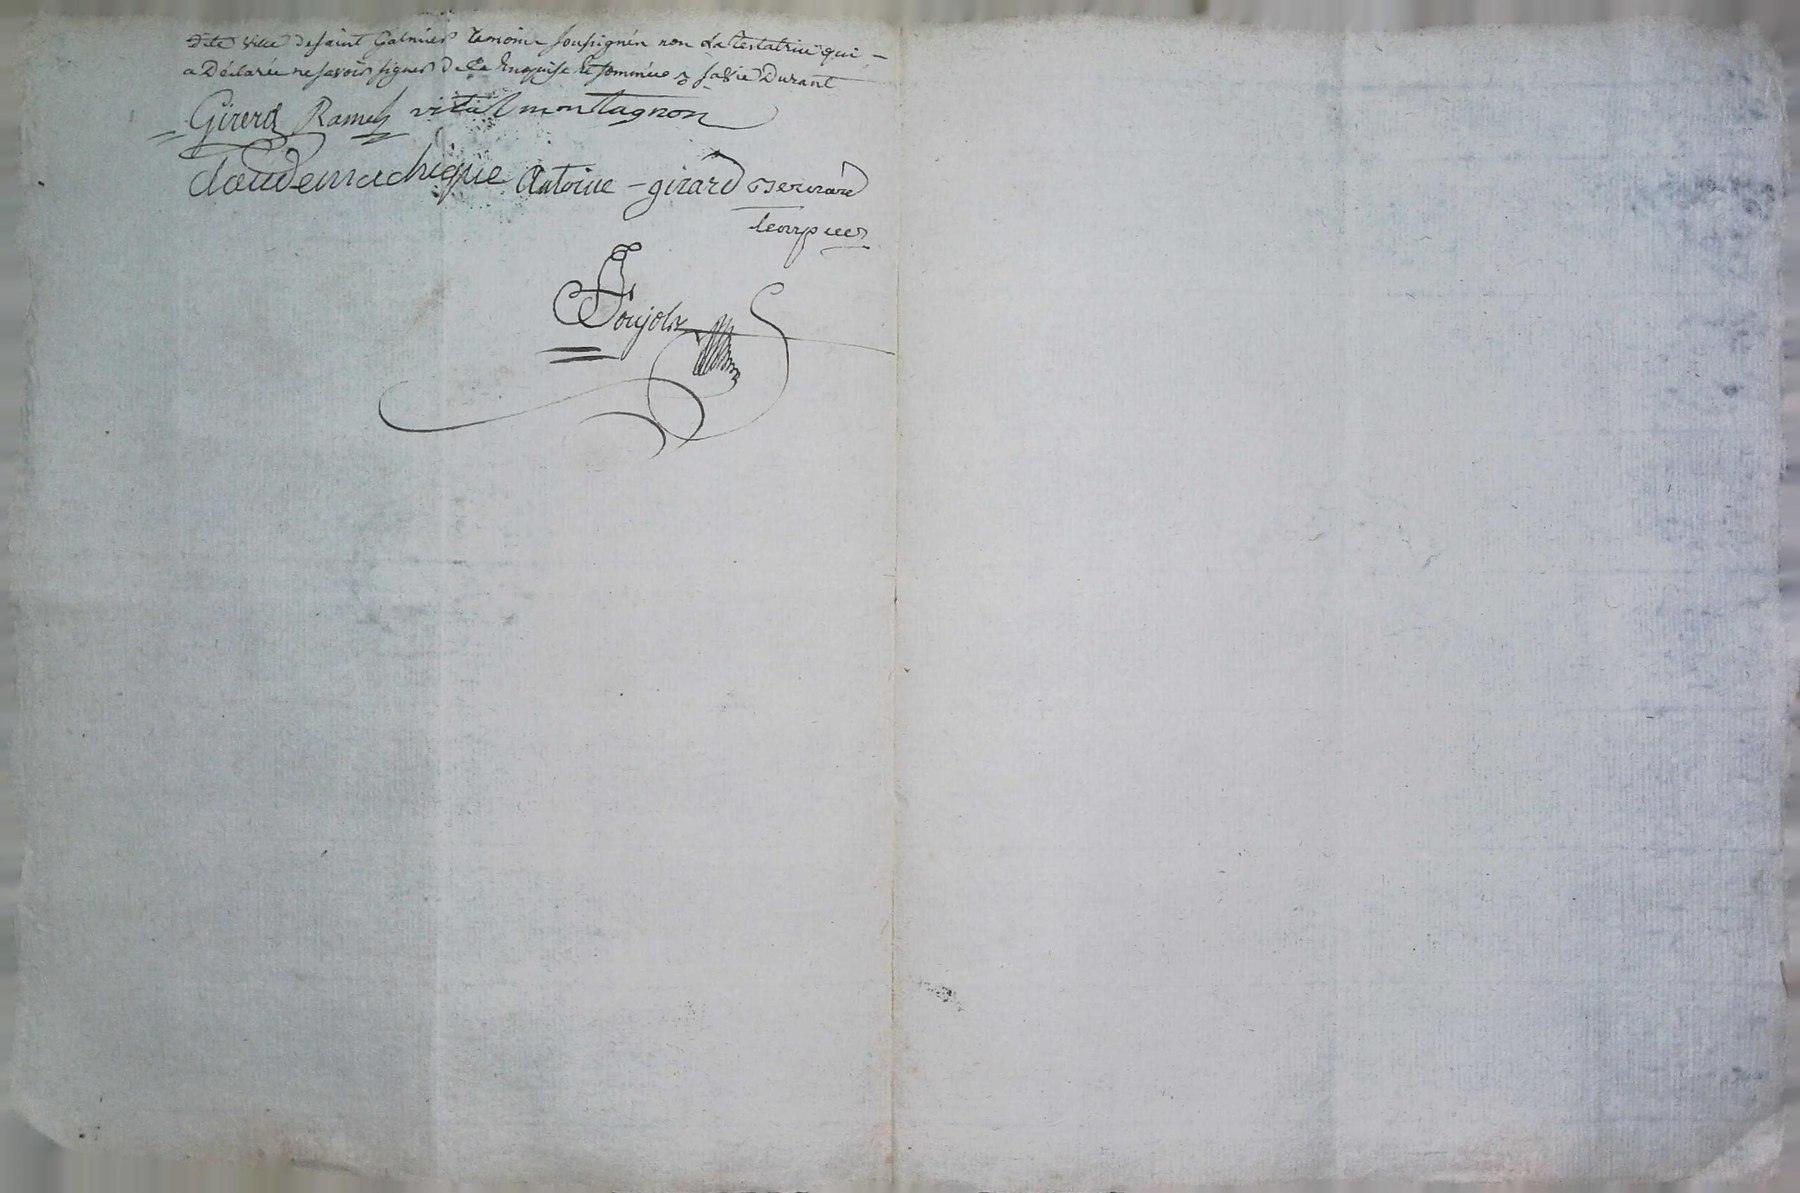 dite ville de saint Galmier temoins soussignés non la testatrice qui -
a Déclarée ne savoir signer de ce Enquise et sommée sa vie Durant
Girerd Ramel vital montagnon
claude machique Antoine - girard Bernard
Poujols